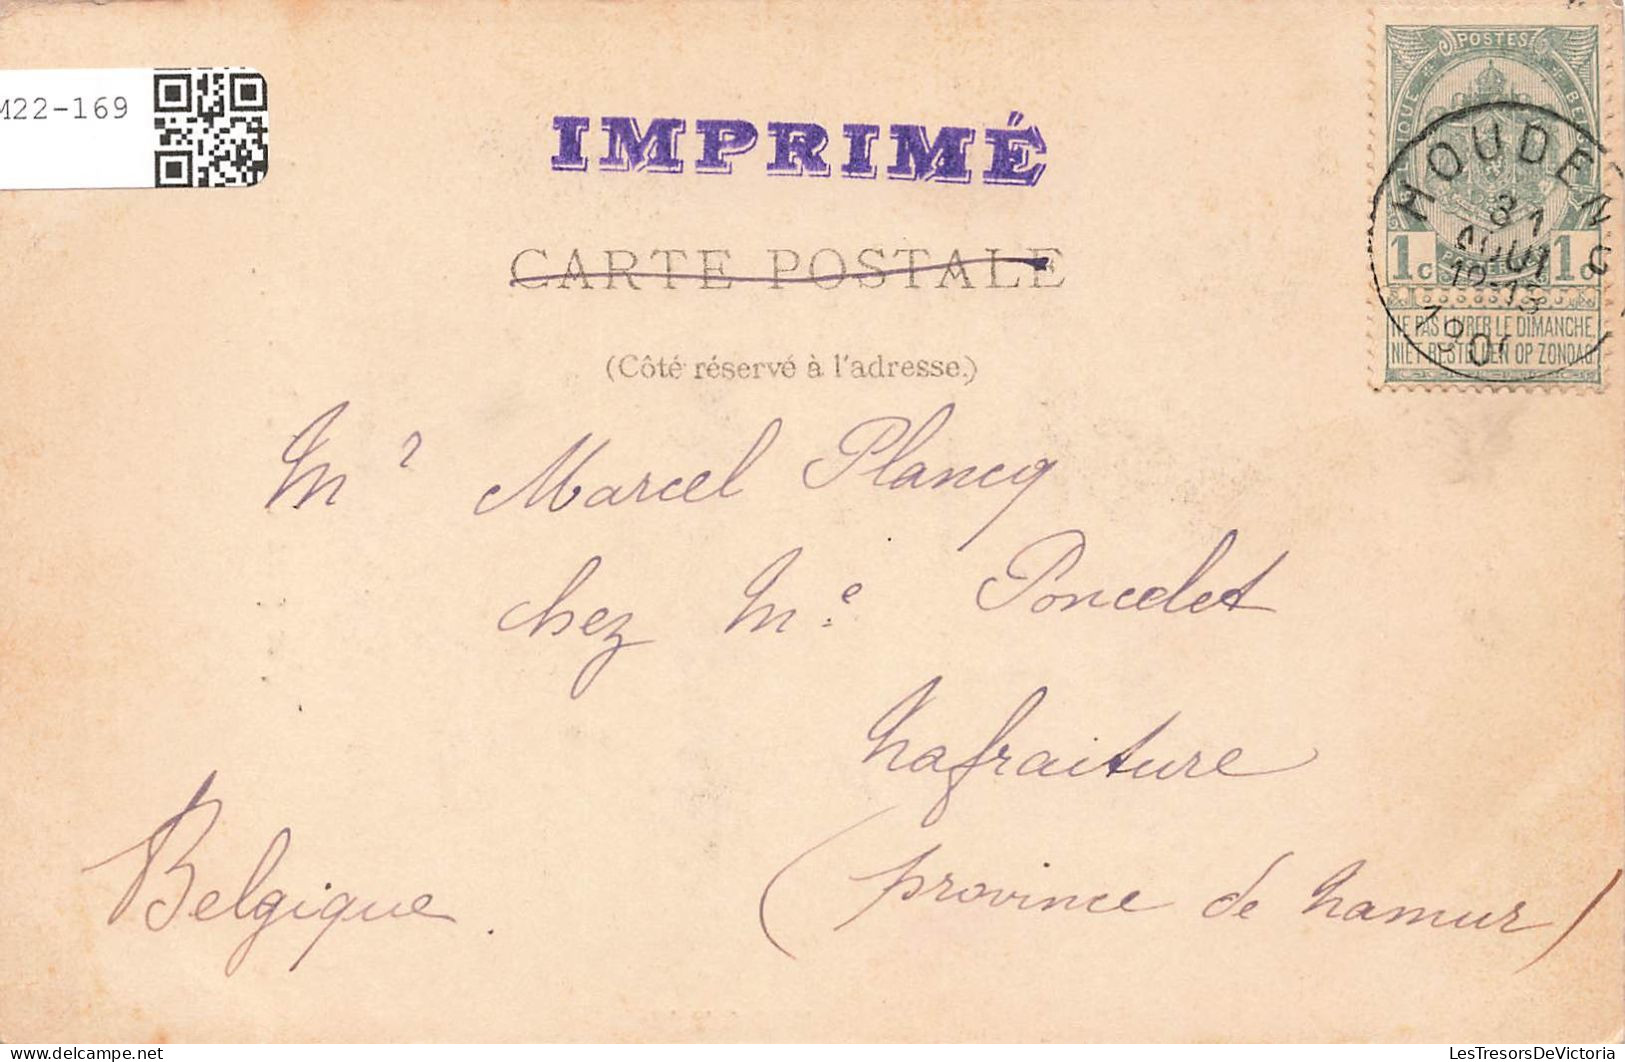 M22-169
IMPRIMÉ
CARTE POSTALE
(Côté réservé à l'adresse.)
POSTES
HOUDENG
31
AOUT
1901
1c 1c
NE PAS LIVRER LE DIMANCHE
NIET BESTELLEN OP ZONDAG
Mr Marcel Plancq
chez Me Poncelet
Nafraiture
(province de Namur)
Belgique.
www.delcampe.net
LesTresorsDeVictoria